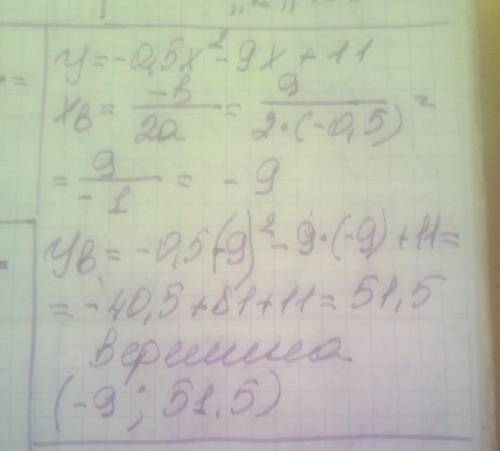 y=-0,5x²-9x+11
xв = -в/2a = 9/2·(-0,5) =
= 9/-1 = -9
yв = -0,5(-9)²-9·(-9)+11=
=-40,5+81+11=51,5
вершина
(-9; 51,5)